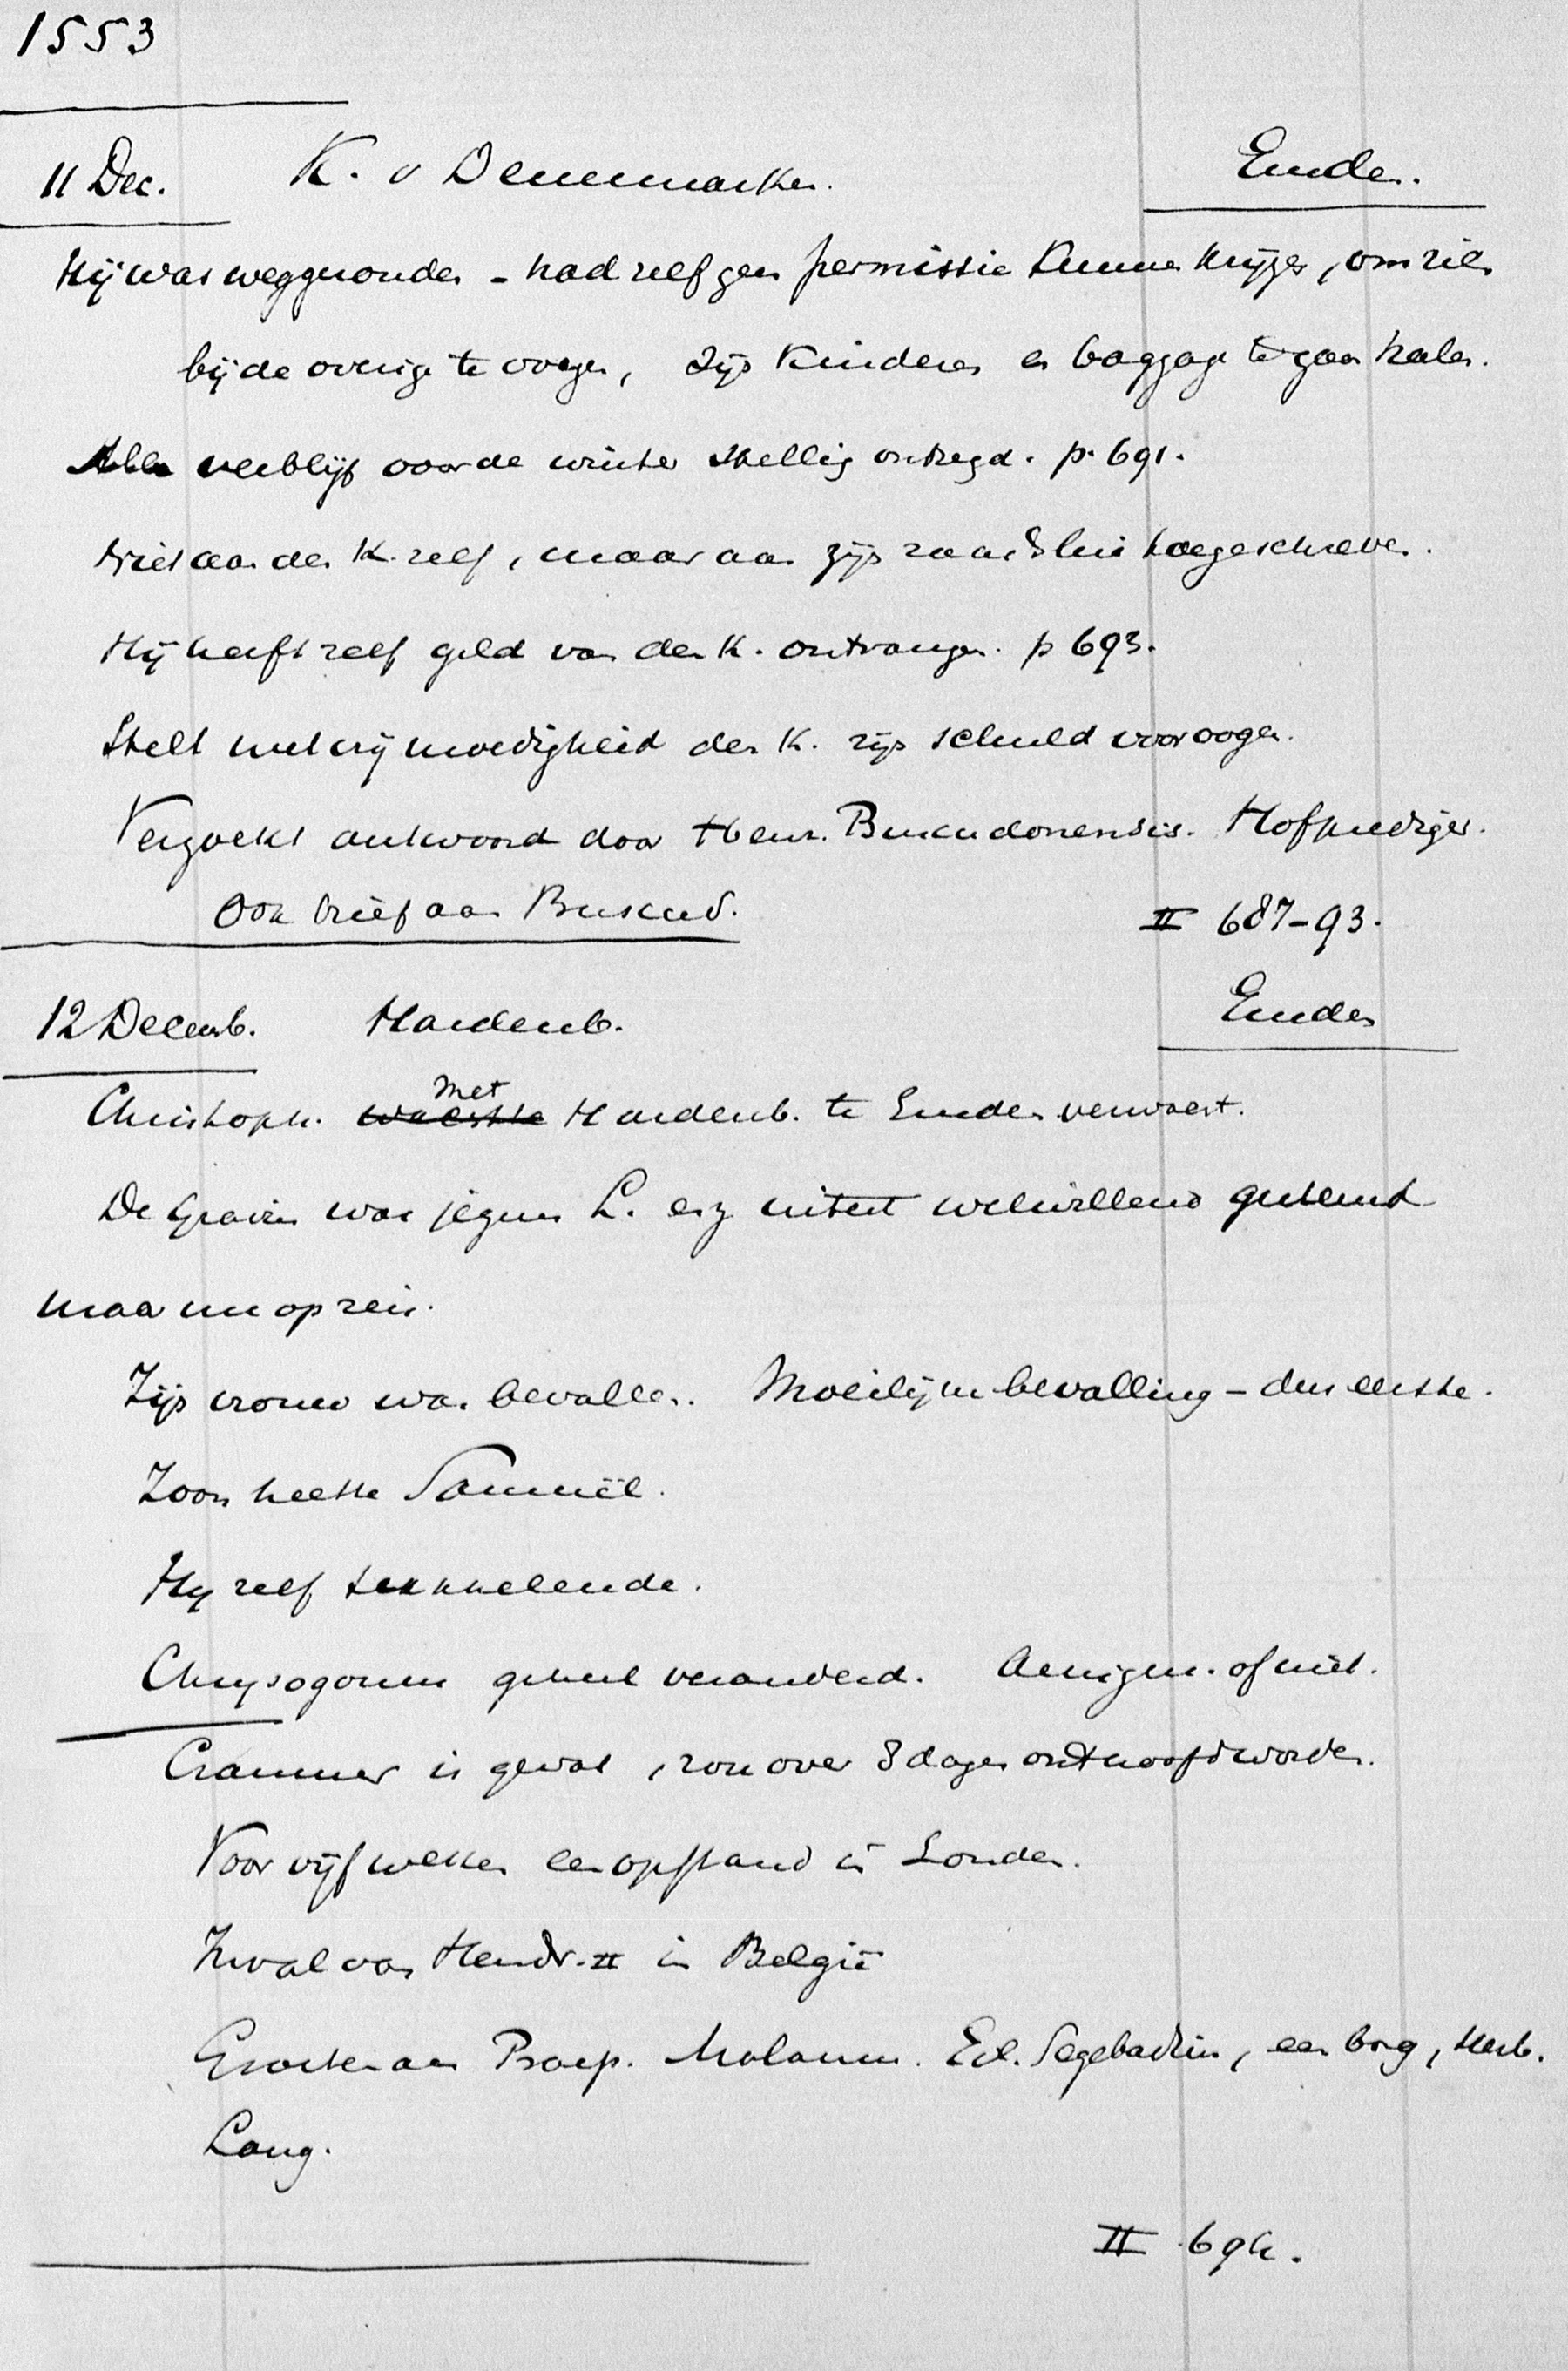 1553
11 Dec. K. v Denemarken. Emden.
Hij was weggezonden - had zelf geen permissie kunnen krijgen, om zich
bij de overige te voegen, zijn kinderen en baggage te gaan halen.
Alle verblijf voor de winter stellig ontzegd. p. 691.
Niet aan den K. zelf, maar aan zijn raadslui toegeschreven.
Hij heeft zelf geld van den K. ontvangen. p 693.
Stelt met vrijmoedigheid den K. zijn schuld voor oogen.
Verzoekt antwoord door Henr. Buscudonensis. Hofprediger.
Ook brief aan Buscud. II 687-93.
12 Decemb. Hardenb. Emden
Christoph. met Hardenb. te Emden verwacht.
De Gravin was jegens L. c.s. uiterst welwillend gestemd
maar nu op reis.
Zijn vrouw was bevallen. Moeilijke bevalling - dus eerste.
Zoon heette Samuël.
Hij zelf sukkelende.
Chrysogonus geheel veranderd. Aenigm. of niet.
Cranmer is gevat, zou over 8 dagen onthoofd worden.
Voor vijf weken een opstand in Londen.
Inval van Hendr. II in België
Groeten aan Praep. Molanus. Ed. Segebadius, een borg, Herb.
Lang.
II 694.